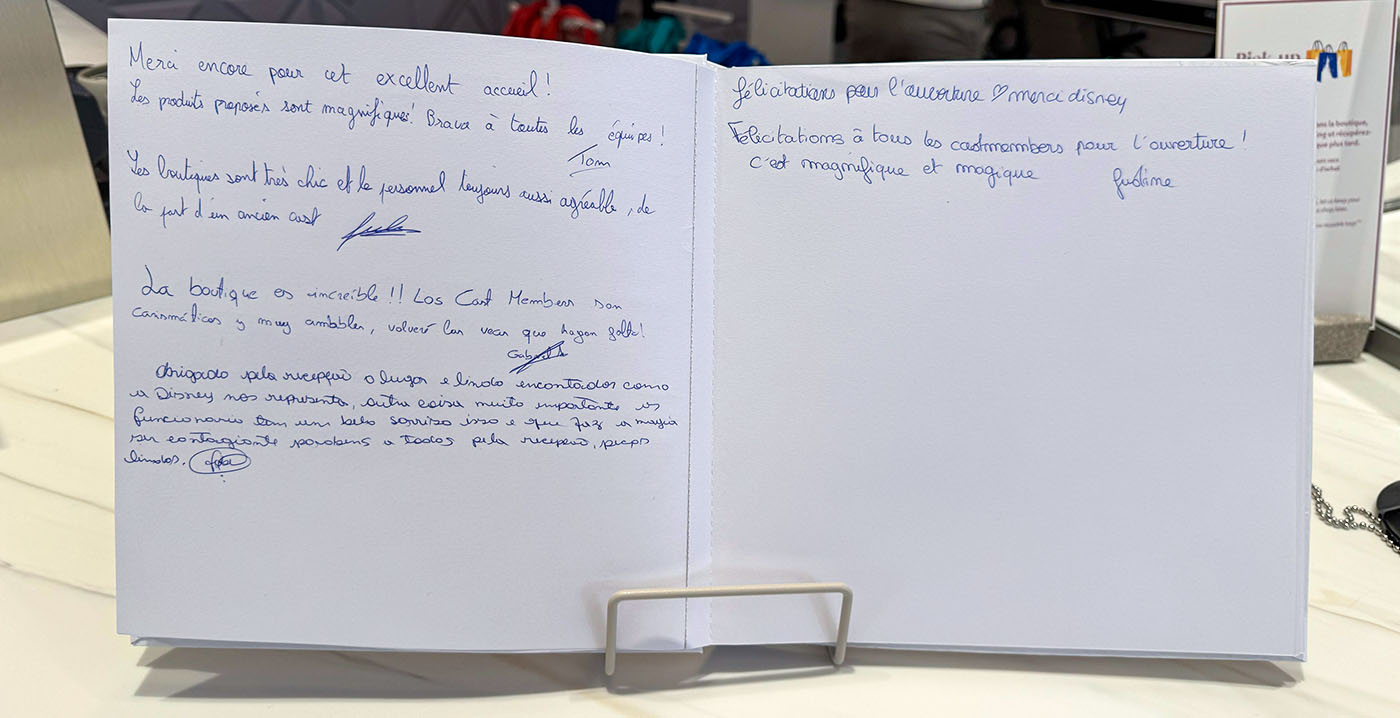 Merci encore pour cet excellent accueil !
Les produits proposés sont magnifiques! Bravo à toutes les équipes !
Tom
Les boutiques sont très chic et le personnel toujours aussi agréable, de
la part d'un ancien cast
La boutique es increíble !! Los Cast Members son
carismáticos y muy ambles, volveré las veces que hagan falta!
Gabriel
Obrigado pela recepção o lugar e lindo encantados como
a Disney nos representa, outra coisa muito importante os
funcionario tem um belo sorriso isso e que faz a magia
ser contagiante parabens a todos pela recepção, peças
lindos.
félicitations pour l'ouverture ♡ merci disney
Félicitations à tous les castmembers pour l'ouverture !
C'est magnifique et magique
Justine
Pick up